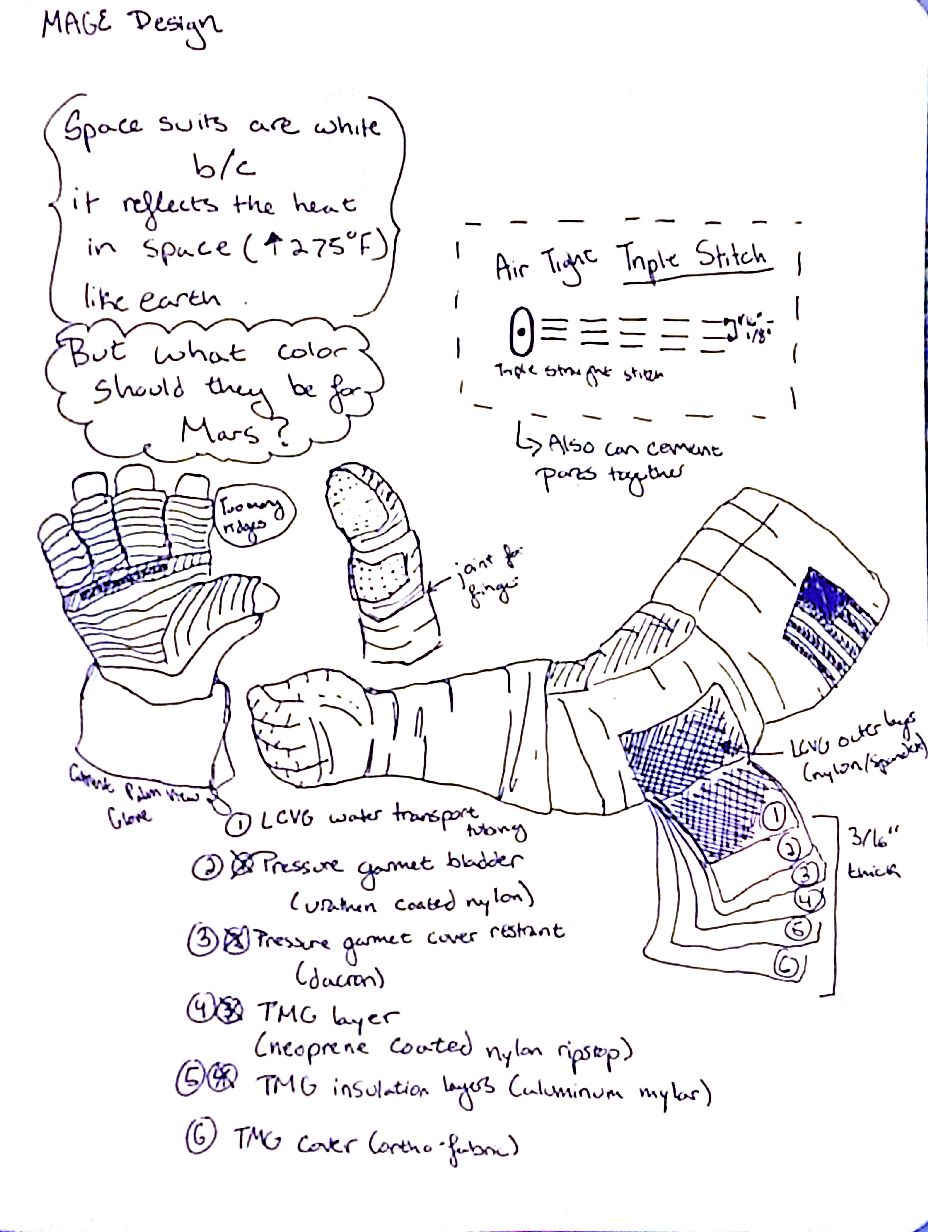 MAGE Design
Space suits are white
b/c
it reflects the heat
in space (↑275°F)
like earth.
But what color
should they be for
Mars?
Air Tight Triple Stitch
1/16"-
1/8"
Triple straight stitch
↳ Also can cement
parts together
Two many
ridges
joint for
finger
LCVG outer layer
(nylon/spandex)
Current Palm View
Glove
① LCVG water transport
tubing
② Pressure garmet bladder
(urathen coated nylon)
③ Pressure garmet cover restrant
(dacron)
④ TMG layer
(neoprene coated nylon ripstop)
⑤ TMG insulation layers (aluminum mylar)
⑥ TMG cover (ortho-fabric)
①
②
③
④
⑤
⑥
3/16"
thick